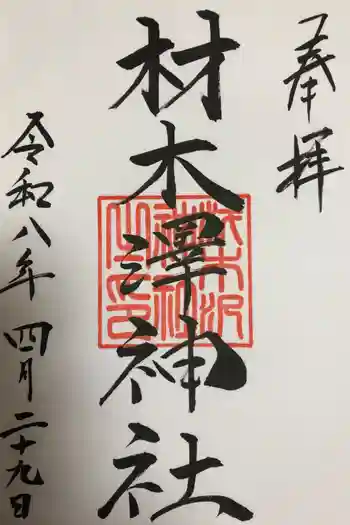 奉拝
材木澤神社
令和八年四月二十九日